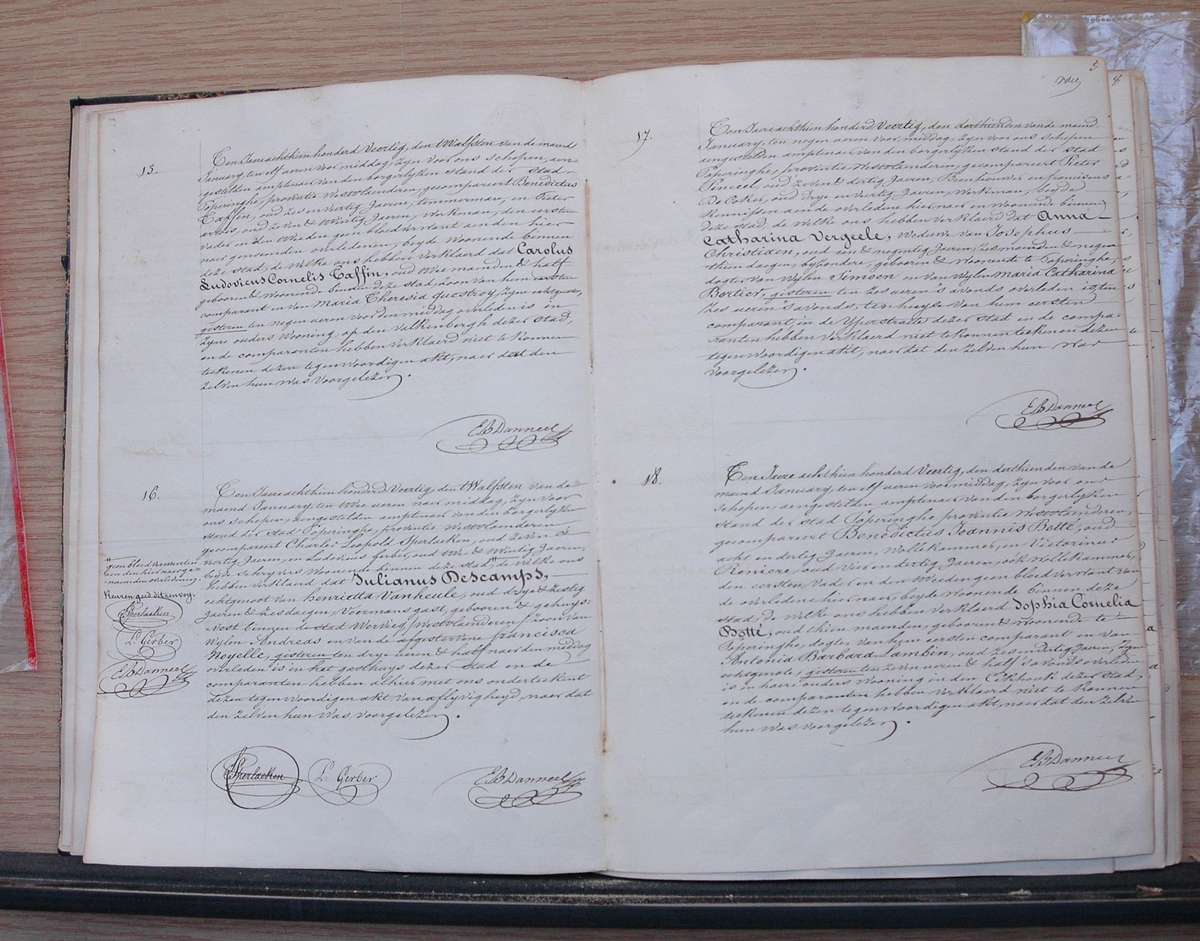 15.
Ten Jaere achthien honderd Veertig, den twalfsten van de maend
January, ten elf ueren voor middag, zyn voor ons schepen, aen-
gestelden amptenaer van den borgerlyken stand der stad
Poperinghe, provintie Westvlaenderen, gecompareert Benedictus
Taffin, oud zes en veertig Jaeren, timmerman, en Pieter
oud zeven & twintig Jaeren, Werkman, den eersten
vader en den tweeden geen bloedverwant aen den hier
naer genoemden overledenen, beyde woonende binnen
deze stad, de welke ons hebben verklaerd dat Carolus
Ludovicus Cornelis Taffin, oud twee maenden & half
gebooren & woonende binnen deze stad, zoon van hem eersten
comparant en van Maria Theresia Questroy, zyne echtgenote,
gisteren ten negen ueren voor den middag overleden is in
zyne ouders wooning op den Valkenbergh dezer stad,
en de comparanten hebben verklaerd niet te konnen
teekenen dezen tegenwoordigen akt, naer dat den
zelven hun was voorgelezen.
E B Danneel
16.
Ten Jaere achthien honderd Veertig, den twalfsten van de
maend January, ten twee ueren naer middag, zyn voor
ons schepen, aengestelden amptenaer van den borgerlyken
stand der stad Poperinghe, provintie Westvlaenderen
gecompareert Charles Leopold Sperlaeken, oud zeven &
veertig Jaeren, en Ludovicus Gerber, oud & twintig Jaeren,
beyde schryvers woonende binnen deze stad, de welke ons
hebben verklaerd dat Julianus Descamps,
echtgenoot van henrietta Vanheule, oud drye & zestig
Jaeren & zes dagen, Voermans gast, gebooren & gehuys-
vest binnen de stad Werwicq (Westvlaenderen) zoon van
wylen Andreas en van de afgestorvene francisca
Noyelle, gisteren ten drye ueren & half naer den middag
overleden is in het gasthuys dezer stad en de
comparanten hebben alhier met ons onderteekent
dezen tegenwoordigen akt van aflyvigheyd, naer dat
den zelven hun was voorgelezen.
geen bloedverwanten
aen den hiernaergen-
aemden overledenen
Keuren goed dit renvoy.
Sperlaeken
L. Gerber
E B Danneel
Sperlaeken L. Gerber E B Danneel
17.
Ten Jaere achthien honderd Veertig, den derthienden van de maend
January, ten negen ueren voor middag, zyn voor ons schepen
aengestelden amptenaer van den borgerlyken stand der stad
Poperinghe, provintie Westvlaenderen, gecompareert Pieter
Pinceel, oud zeven & dertig Jaeren, en franciscus
De Coker, oud drye en veertig Jaeren, Werkman, beyde
kennissen aen de overledene hiernaer en woonende binnen
deze stad, de welke ons hebben verklaerd dat Anna
Catharina Vergeele, weduwe van Josephus
Christiaen, oud een & negentig Jaeren, zes maenden & negen-
thien dagen, gebooren & woonende te Poperinghe,
dogter van wylen Simoen en van wylen Maria Catharina
Bertier, gisteren ten zes ueren 's avonds overleden is ten
zes ueren 's avonds, ten huyze van hem eersten
comparant, in de Yperstraete dezer stad en de compa-
ranten hebben verklaerd niet te konnen teekenen dezen
tegenwoordigen akt, naer dat den zelven hun was
voorgelezen.
E B Danneel
18.
Ten Jaere achthien honderd Veertig, den derthienden van de
maend January, ten elf ueren voor middag, zyn voor ons
schepen, aengestelden amptenaer van den borgerlyken
stand der stad Poperinghe provintie Westvlaenderen,
gecompareert Benedictus Joannis Botte, oud
acht en dertig Jaeren, Wollekammer, en Victorinus
oud vier en dertig Jaeren, ook Wollekammer,
den eersten Vader en den tweeden geen bloedverwant van
de overledene hiernaer, beyde woonende binnen deze
stad, de welke ons hebben verklaerd Sophia Cornelia
Botte, oud thien maenden, gebooren & woonende te
Poperinghe, dogter van hem eersten comparant en van
Antonia Barbara Lambin, oud zes en dertig Jaeren, zyne
echtgenote, gisteren ten zeven ueren & half 's avonds overleden
is in haere ouders wooning in den dezer stad,
en de comparanten hebben verklaerd niet te konnen
teekenen dezen tegenwoordigen akt, naer dat den zelven
hun was voorgelezen.
E B Danneel